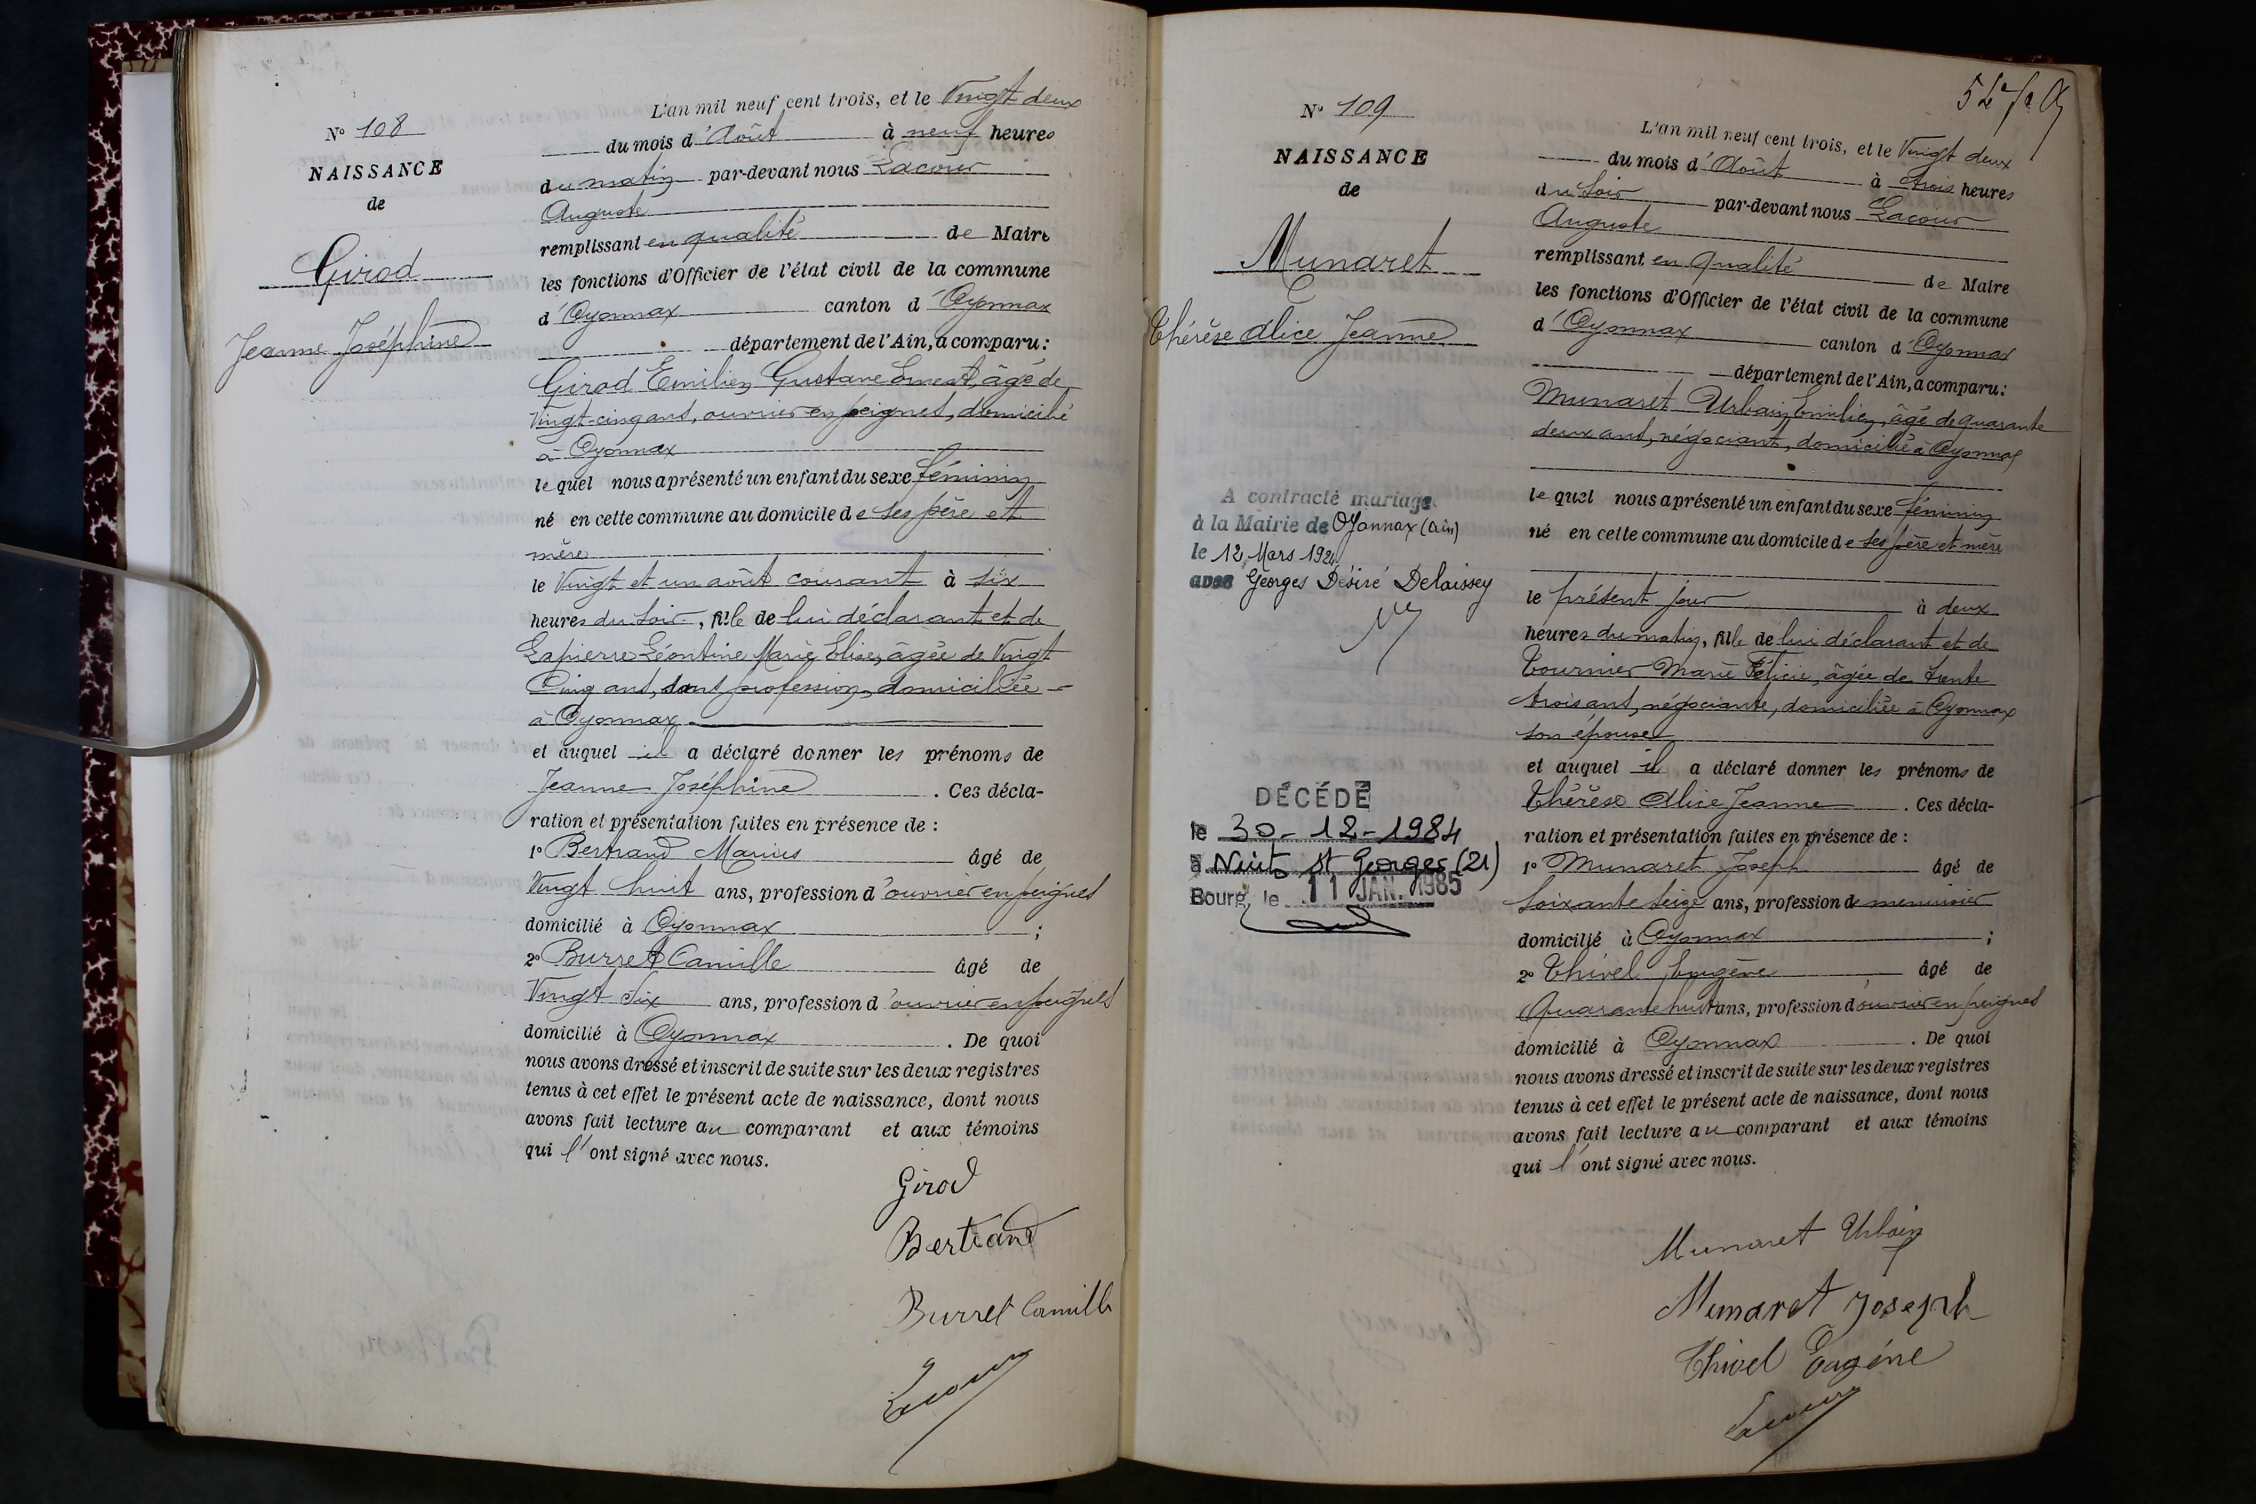 N° 108
NAISSANCE
de
Girod
Jeanne Joséphine
L'an mil neuf cent trois, et le Vingt deux
du mois d'Août à neuf heures
du matin par-devant nous Lacour
Auguste
remplissant en qualité de Maire
les fonctions d'Officier de l'état civil de la commune
d'Oyonnax canton d'Oyonnax
département de l'Ain, a comparu :
Girod Emilien Gustave Ernest, âgé de
Vingt-cinq ans, ouvrier en peignes, domicilié
à Oyonnax
lequel nous a présenté un enfant du sexe féminin
né en cette commune au domicile de ses père et
mère
le Vingt et un août courant à six
heures du soir, fille de lui déclarant et de
Lapierre Léontine Marie Elise, âgée de Vingt
Cinq ans, sans profession, domiciliée
à Oyonnax
et auquel il a déclaré donner les prénoms de
Jeanne Joséphine. Ces décla-
ration et présentation faites en présence de :
1° Bertrand Marius âgé de
Vingt huit ans, profession d'ouvrier en peignes
domicilié à Oyonnax ;
2° Burret Camille âgé de
Vingt six ans, profession d'ouvrier en peignes
domicilié à Oyonnax. De quoi
nous avons dressé et inscrit de suite sur les deux registres
tenus à cet effet le présent acte de naissance, dont nous
avons fait lecture au comparant et aux témoins
qui l'ont signé avec nous.
Girod
Bertrand
Burret Camille
Lacour
N° 109
NAISSANCE
de
Munaret
Thérèse Alice Jeanne
A contracté mariage
à la Mairie de Oyonnax (Ain)
le 12 Mars 1924
avec Georges Désiré Delaissey
DÉCÉDÉ
le 30-12-1984
à Nuits St Georges (21)
Bourg, le 11 JAN. 1985
L'an mil neuf cent trois, et le Vingt deux
du mois d'Août à trois heures
du soir par-devant nous Lacour
Auguste
remplissant en qualité de Maire
les fonctions d'Officier de l'état civil de la commune
d'Oyonnax canton d'Oyonnax
département de l'Ain, a comparu :
Munaret Urbain Emilien, âgé de quarante
deux ans, négociant, domicilié à Oyonnax
lequel nous a présenté un enfant du sexe féminin
né en cette commune au domicile de ses père et mère
le présent jour à deux
heures du matin, fille de lui déclarant et de
Tournier Marie Félicie, âgée de trente
trois ans, négociante, domiciliée à Oyonnax
son épouse
et auquel il a déclaré donner les prénoms de
Thérèse Alice Jeanne. Ces décla-
ration et présentation faites en présence de :
1° Munaret Joseph âgé de
soixante seize ans, profession de menuisier
domicilié à Oyonnax ;
2° Thivel Eugène âgé de
Quarante huit ans, profession d'ouvrier en peignes
domicilié à Oyonnax. De quoi
nous avons dressé et inscrit de suite sur les deux registres
tenus à cet effet le présent acte de naissance, dont nous
avons fait lecture au comparant et aux témoins
qui l'ont signé avec nous.
Munaret Urbain
Munaret Joseph
Thivel Eugène
Lacour